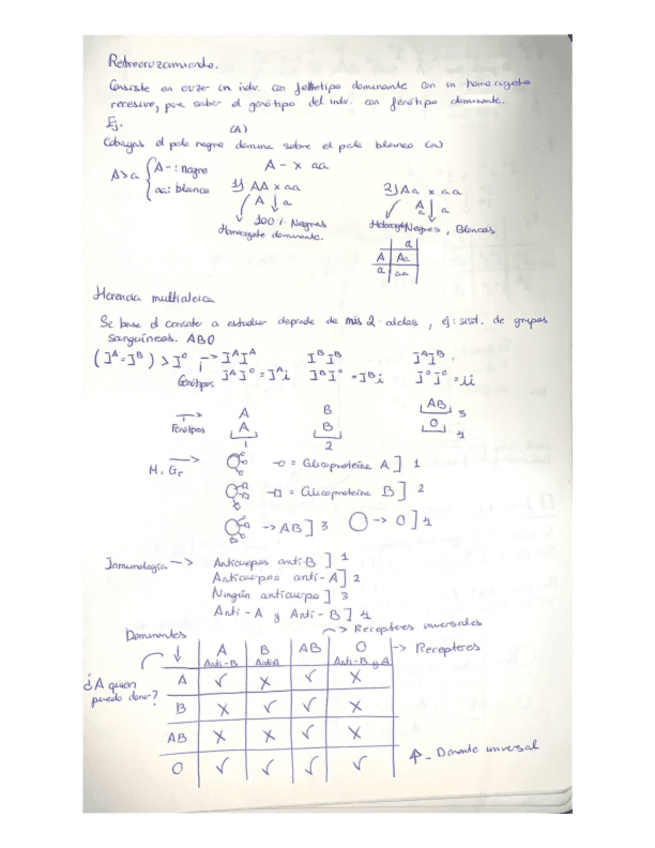 Retrocruzamiento.
Consiste en cruzar un indv. con fenotipo dominante con un homocigoto
recesivo, para saber el genótipo del indv. con fenótipo dominante.
Ej. (A)
Cobayas el pelo negro domina sobre el pelo blanco (a)
A>a { A- : negro A- x aa
aa: blanco 1) AA x aa 2) Aa x aa
A ↓ a A a ↓ a
100% Negros Negros, Blancos
Homocigoto dominante.
a
A Aa
a aa
Herencia multialelica
Se base el caracter a estudiar depende de más 2 alelos, ej: sist. de grupos
sanguíneos. ABO
(I^A = I^B) > I^o → I^A I^A I^B I^B I^A I^B
Genótipos I^A I^o = I^A i I^B I^o = I^B i I^o I^o = ii
→ A B AB 3
Fenótipos A B O 4
1 2
M. Gr → -o = Glicoproteína A] 1
-□ = Glicoproteína B] 2
→ AB] 3 O → O] 4
Inmunología → Anticuerpos anti-B] 1
Anticuerpos anti-A] 2
Ningún anticuerpo] 3
Anti-A y Anti-B] 4
→ Receptores inversales
A B AB O → Receptores
Anti-B Anti A Anti-B y A
¿A quien A ✓ X ✓ X
puedo donar? B X ✓ ✓ X
AB X X ✓ X
O ✓ ✓ ✓ ✓
- Donante unversal